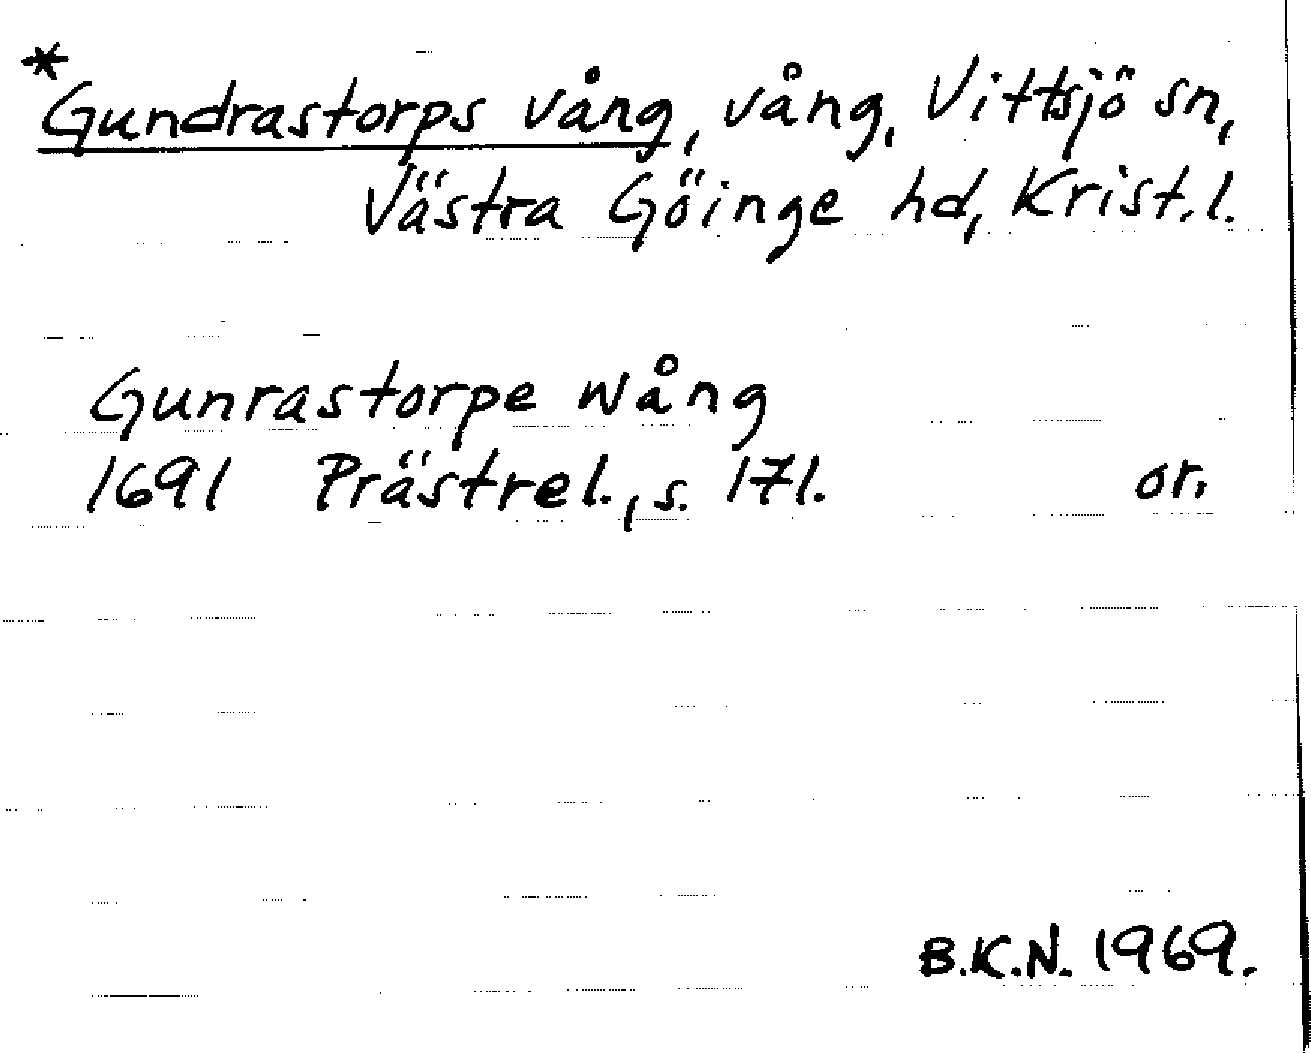 *Gundrastorps vång, vång, Vittsjö sn,
Västra Göinge hd, Krist.l.
Gunrastorpe wång
1691 Prästrel., s. 171. or.
B.K.N. 1969.